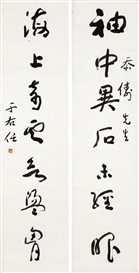 袖中異石未經眼
泰儔先生
海上奇雲欲盪胸
于右任